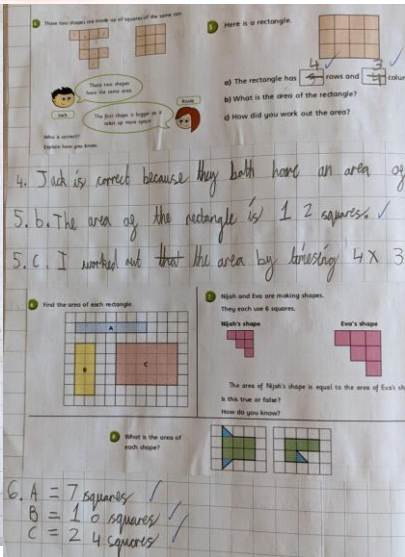 These two shapes are made up of squares of the same size.
These two shapes
have the same area.
Jack
The first shape is bigger as it
takes up more space.
Who is correct?
Explain how you know.
5 Here is a rectangle.
4 3
a) The rectangle has rows and colu
b) What is the area of the rectangle?
c) How did you work out the area?
4. Jack is correct because they both have an area og
5. b. The area og the rectangle is 12 squares. ✓
5. C. I worked out that the area by timesing 4 x 3
6 Find the area of each rectangle.
A
B
C
7 Nijah and Eva are making shapes.
They each use 6 squares.
Nijah's shape Eva's shape
The area of Nijah's shape is equal to the area of Eva's sh
Is this true or false?
How do you know?
8 What is the area of
each shape?
6. A = 7 squares ✓
B = 10 squares ✓
C = 24 squares ✓